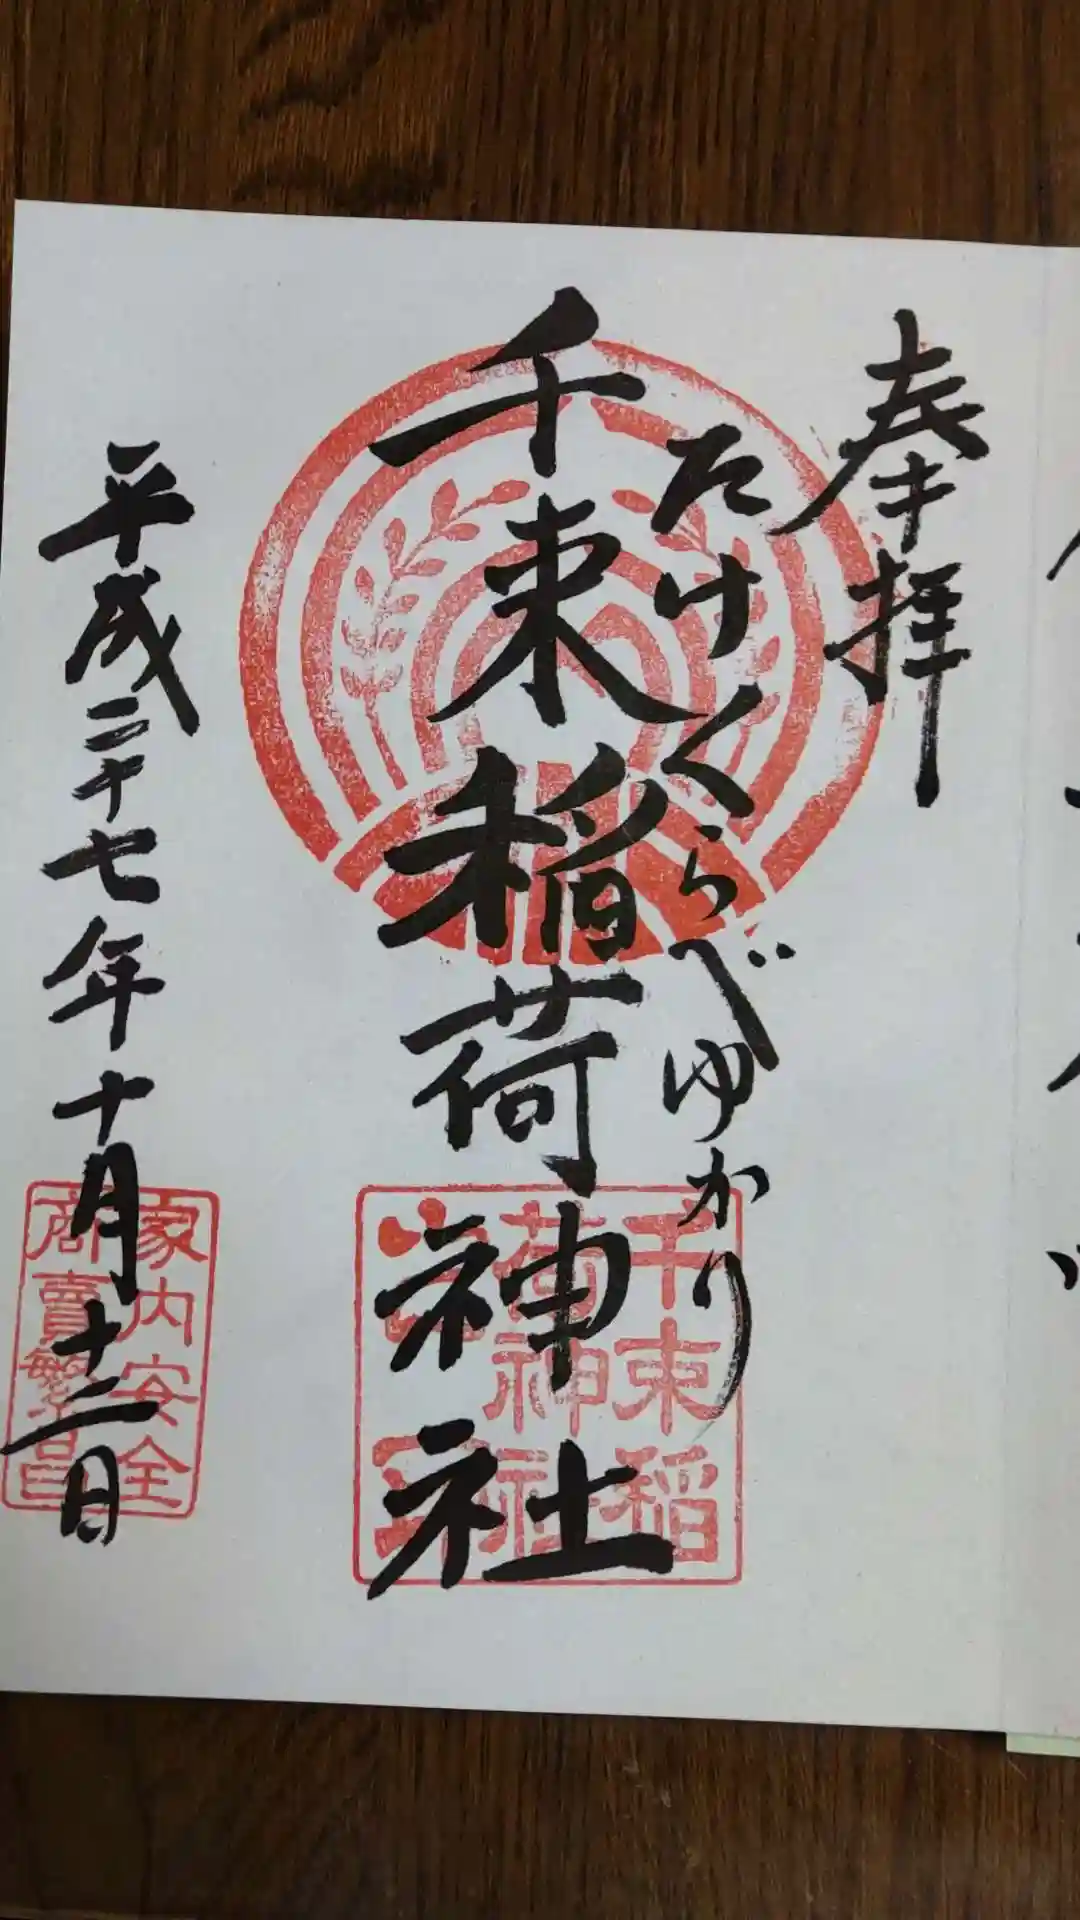 奉拝
たけくらべゆかり
千束稲荷神社
平成二十七年十月十二日
千束稲
荷神社
家内安全
商賣繁昌